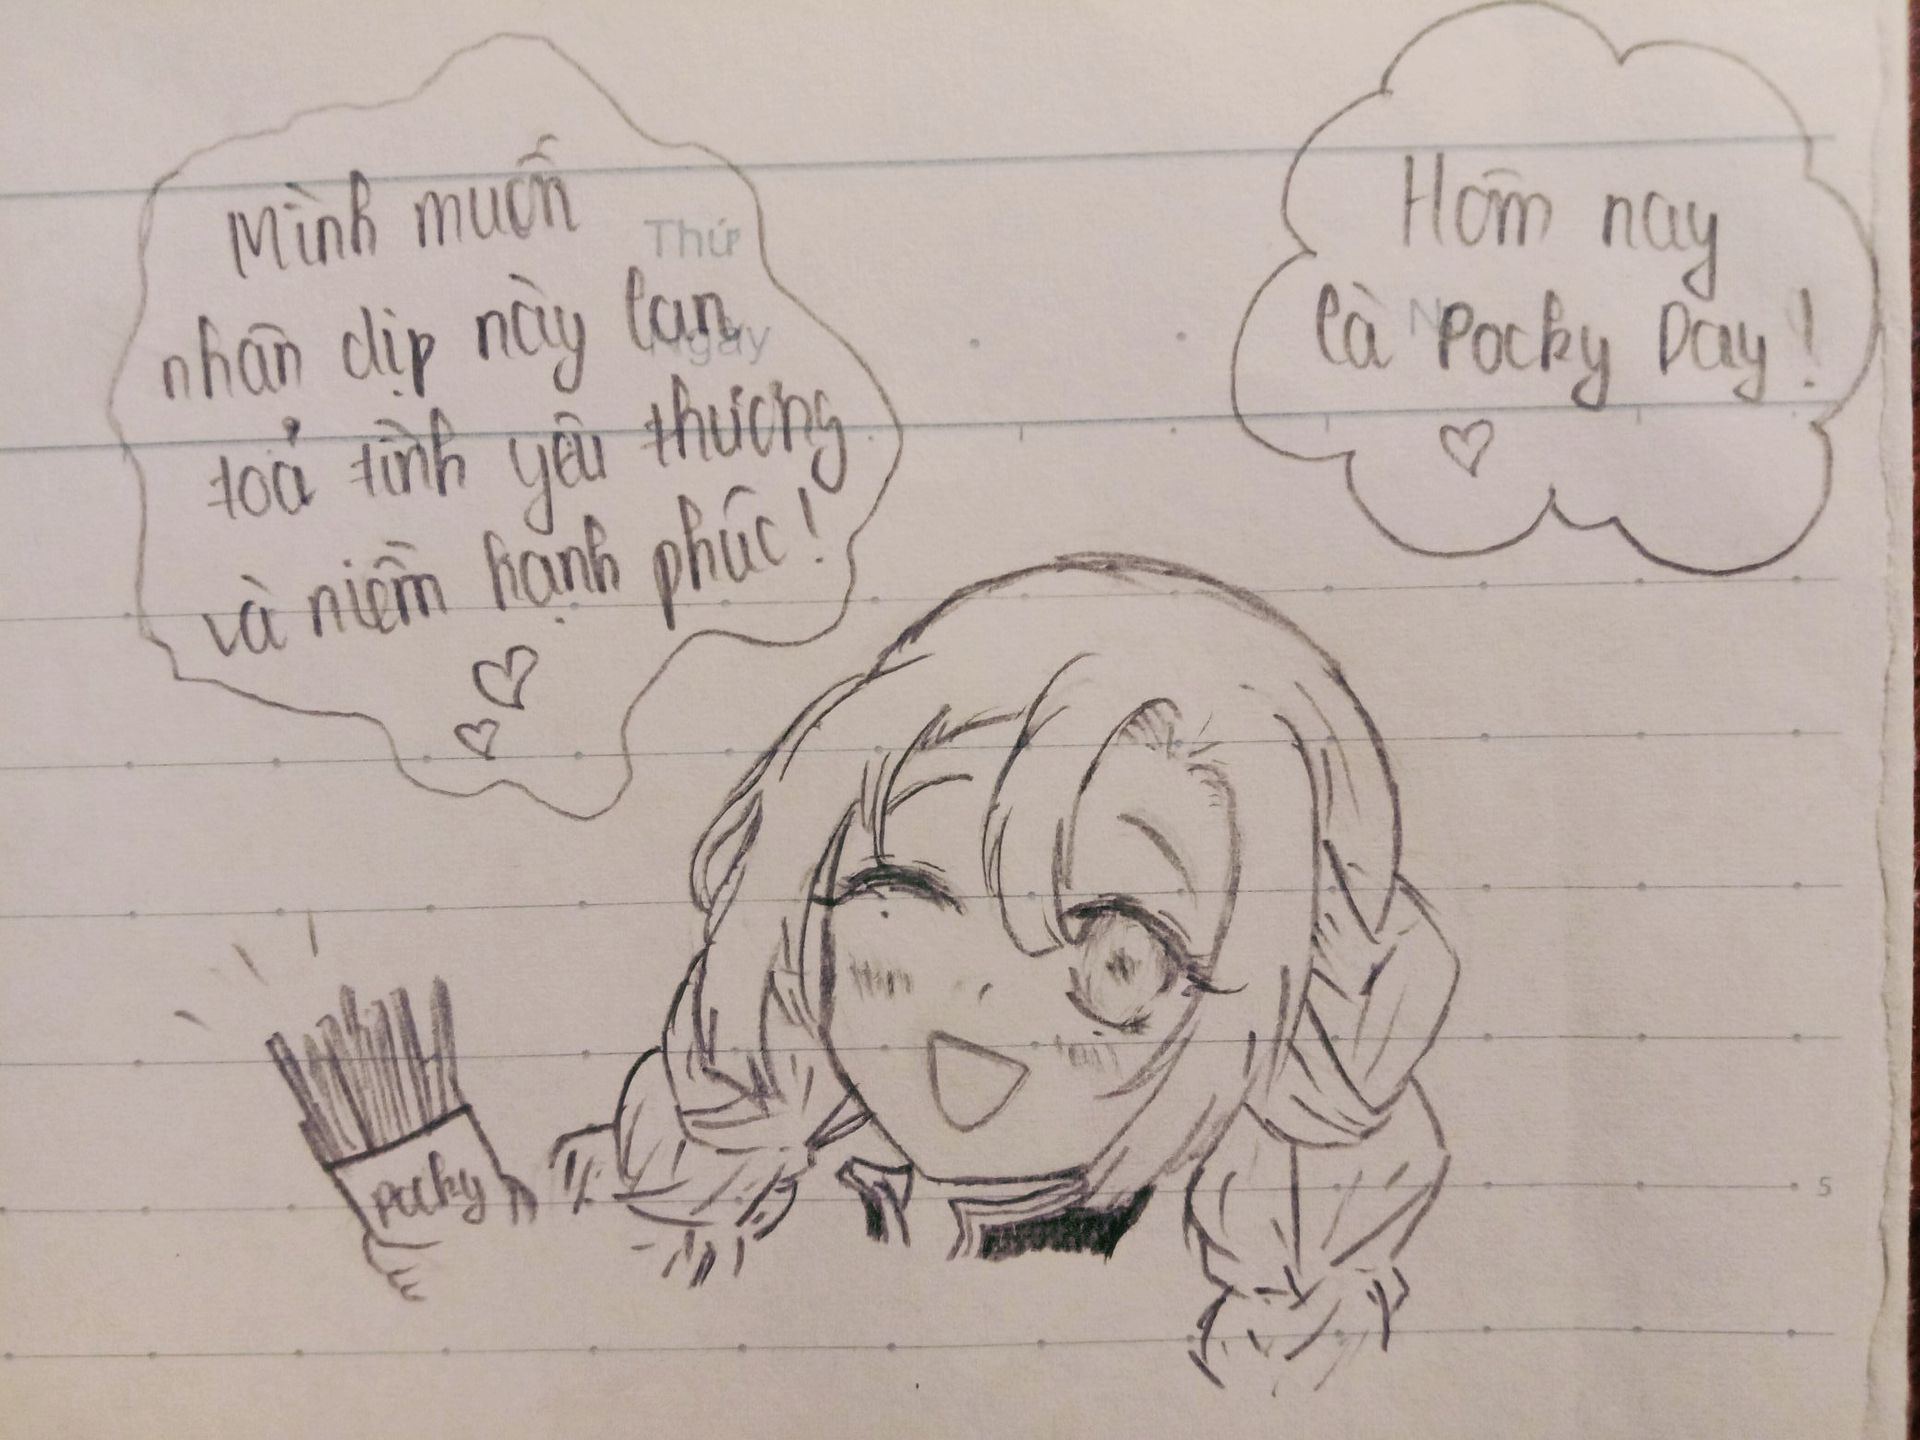 Mình muốn
nhân dịp này lan
toả tình yêu thương
và niềm hạnh phúc!
Hôm nay
là Pocky Day!
Thứ
Ngày
N
Pocky
5